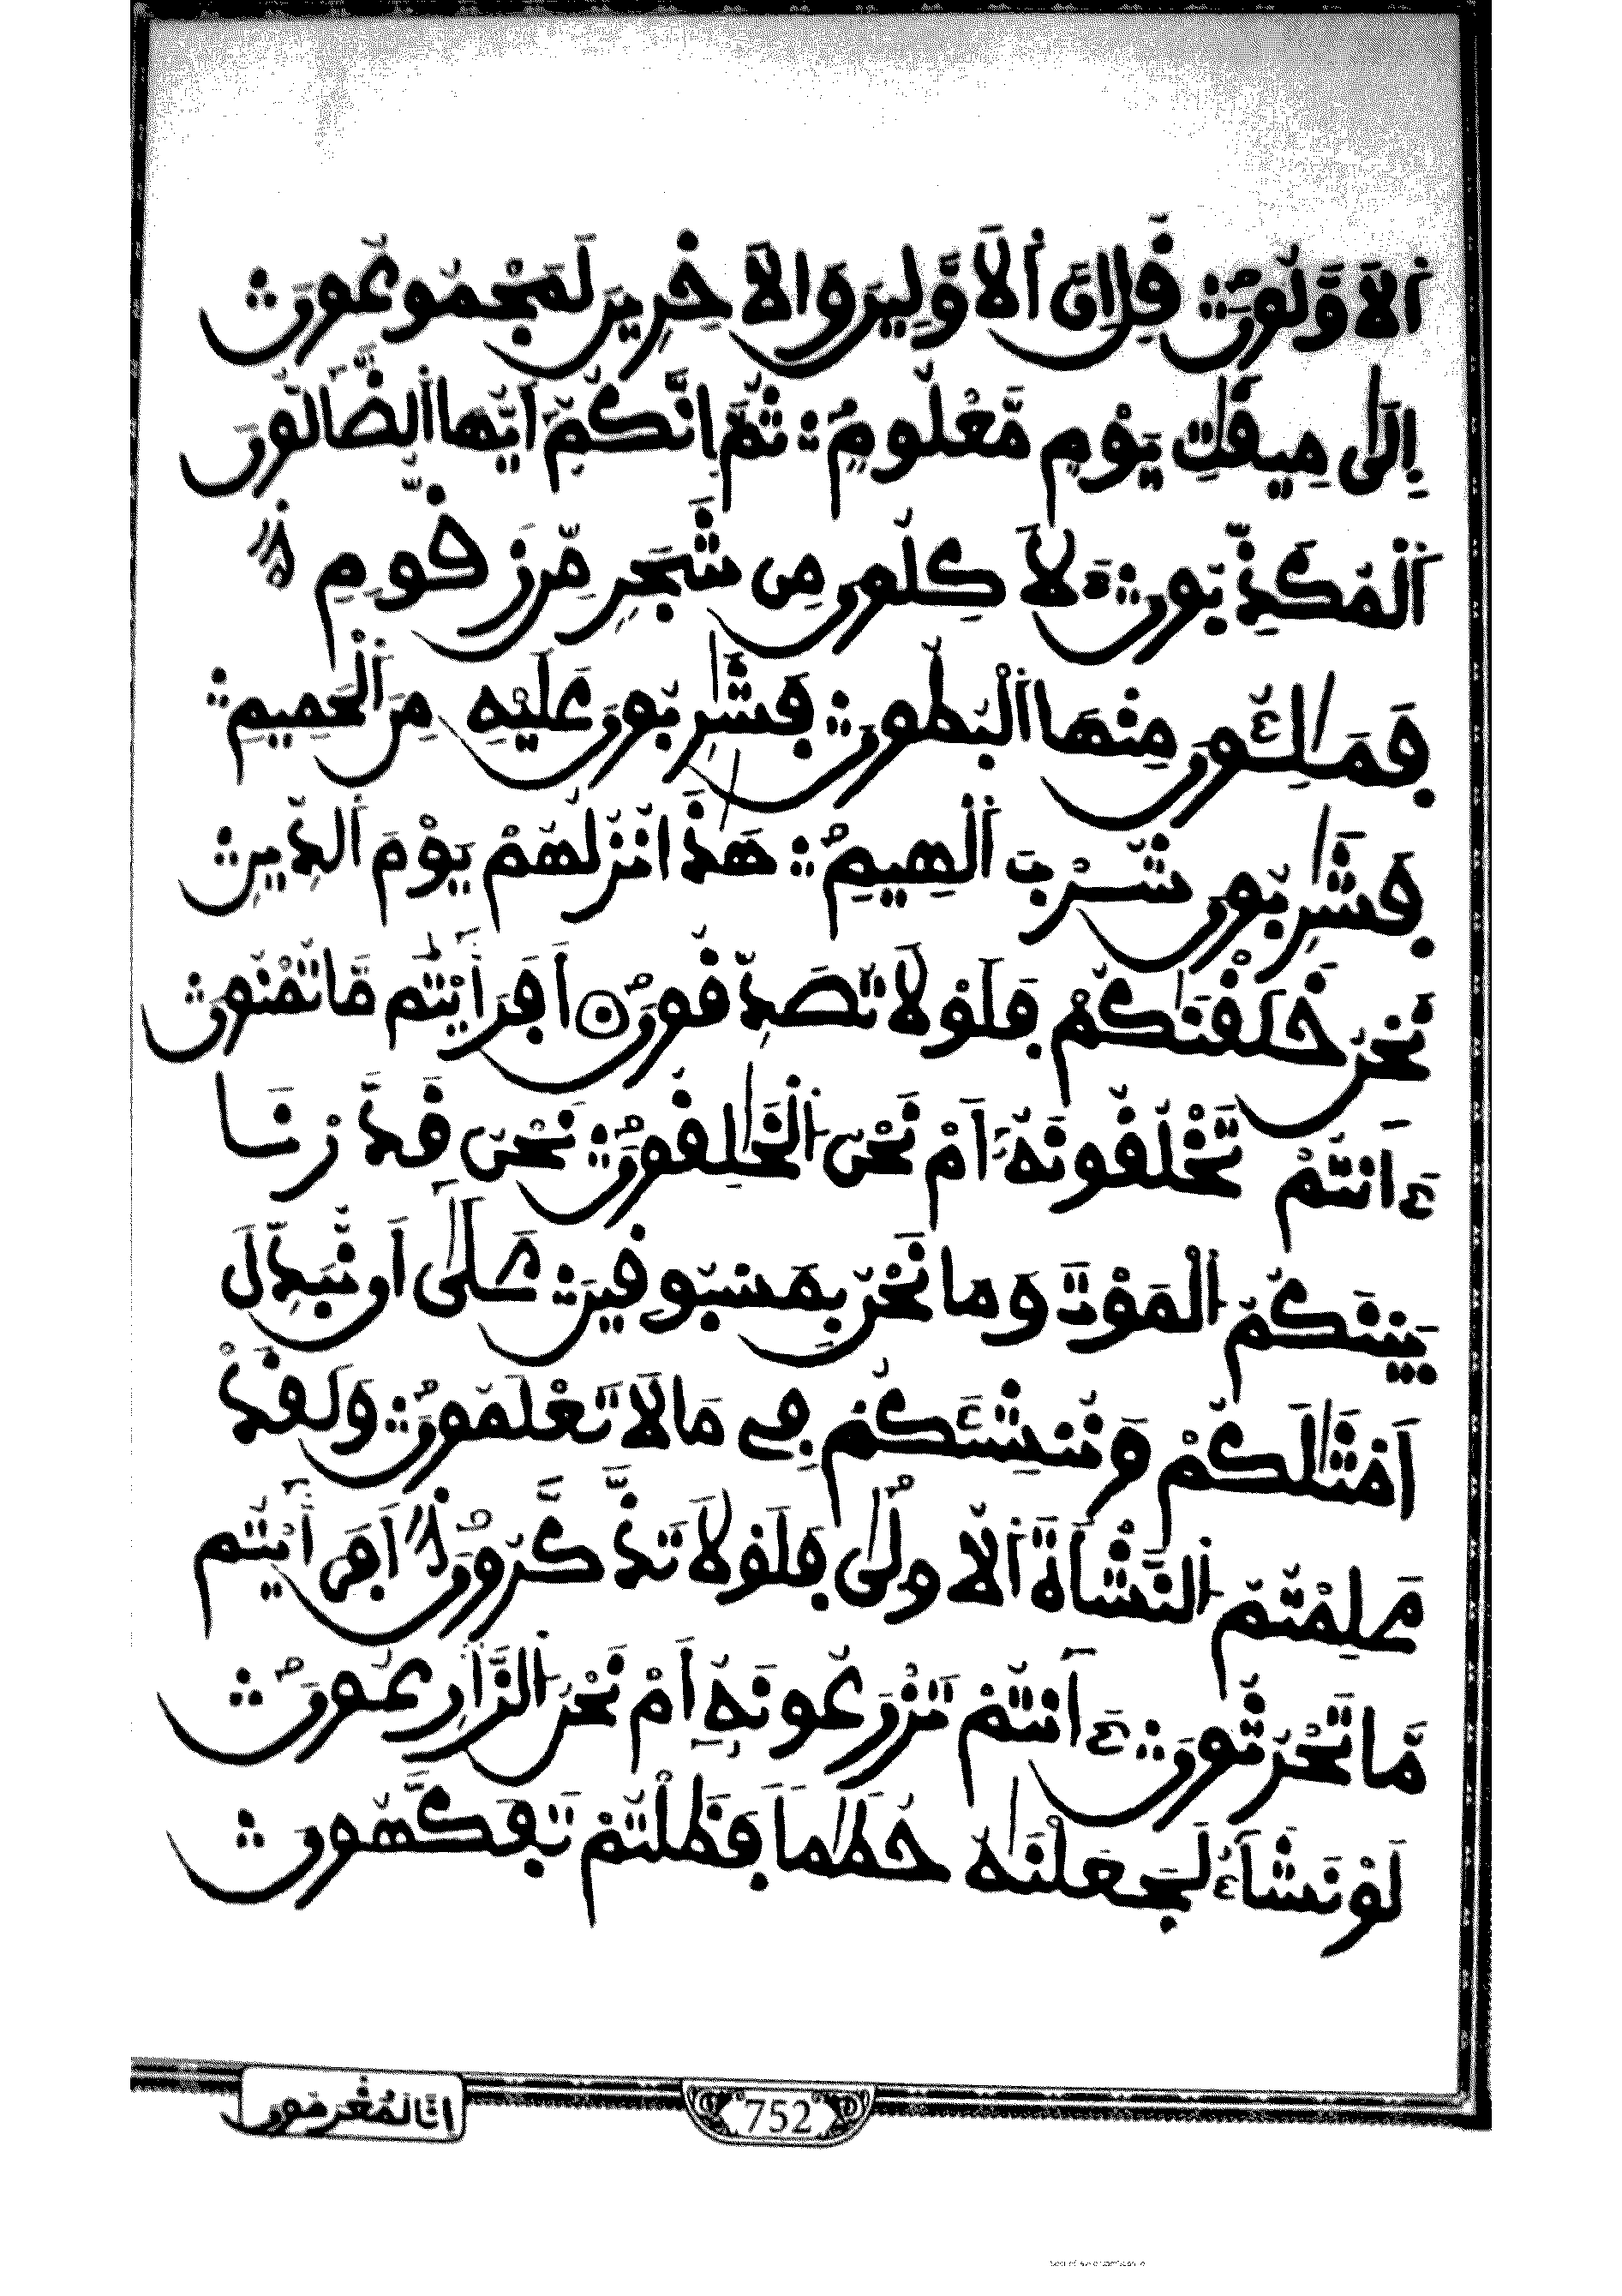 اَ۬لَاوَّلُونَۖ قُلِ اِنَّ اَ۬لَاوَّلِينَ وَالَاخِرِينَ لَمَجْمُوعُونَ
إِلَىٰ مِيقَٰتِ يَوْمٖ مَّعْلُومٖ ثُمَّ إِنَّكُمُۥٓ أَيُّهَا اَ۬لضَّآلُّونَ
اَ۬لْمُكَذِّبُونَ ءَلَاكِلُونَ مِن شَجَرٖ مِّن زَقُّومٖ
فَمَٰلِـُٔونَ مِنْهَا اَ۬لْبُطُونَ فَشَٰرِبُونَ عَلَيْهِ مِنَ اَ۬لْحَمِيمِ
فَشَٰرِبُونَ شُرْبَ اَ۬لْهِيمِ هَٰذَا نُزُلُهُمْ يَوْمَ اَ۬لدِّينِ
نَحْنُ خَلَقْنَٰكُمْ فَلَوْلَا تُصَدِّقُونَۖ أَفَرَٰٓيْتُم مَّا تُمْنُونَ
ءَآنتُمْ تَخْلُقُونَهُۥٓ أَمْ نَحْنُ اُ۬لْخَٰلِقُونَۖ نَحْنُ قَدَّرْنَا
بَيْنَكُمُ اُ۬لْمَوْتَ وَمَا نَحْنُ بِمَسْبُوقِينَ عَلَىٰٓ أَن نُّبَدِّلَ
أَمْثَٰلَكُمْ وَنُنشِئَكُمْ فِے مَا لَا تَعْلَمُونَۖ وَلَقَدْ
عَلِمْتُمُ اُ۬لنَّشْأَةَ اَ۬لُاولَىٰ فَلَوْلَا تَذَّكَّرُونَۖ أَفَرَٰٓيْتُم
مَّا تَحْرُثُونَ ءَآنتُمْ تَزْرَعُونَهُۥٓ أَمْ نَحْنُ اُ۬لزَّٰرِعُونَۖ
لَوْ نَشَآءُ لَجَعَلْنَٰهُ حُطَٰماٗ فَظَلْتُمْ تَفَكَّهُونَ
إِنَّا لَمُغْرَمُونَ
752